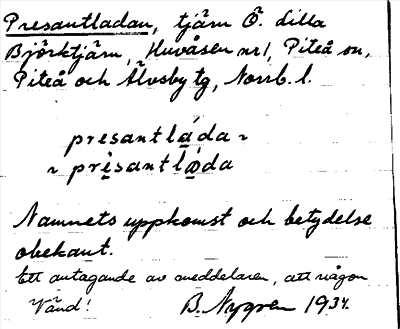 Presantladan, tjärn Ö. Lilla
Björktjärn, Huvåsen nr 1, Piteå sn,
Piteå och Älvsby tg, Norrb. l.
presantláda ~
~ prèsantlàda
Namnets uppkomst och betydelse
obekant.
Ett antagande av meddelaren, att någon
Vänd! B. Nygren 1934.